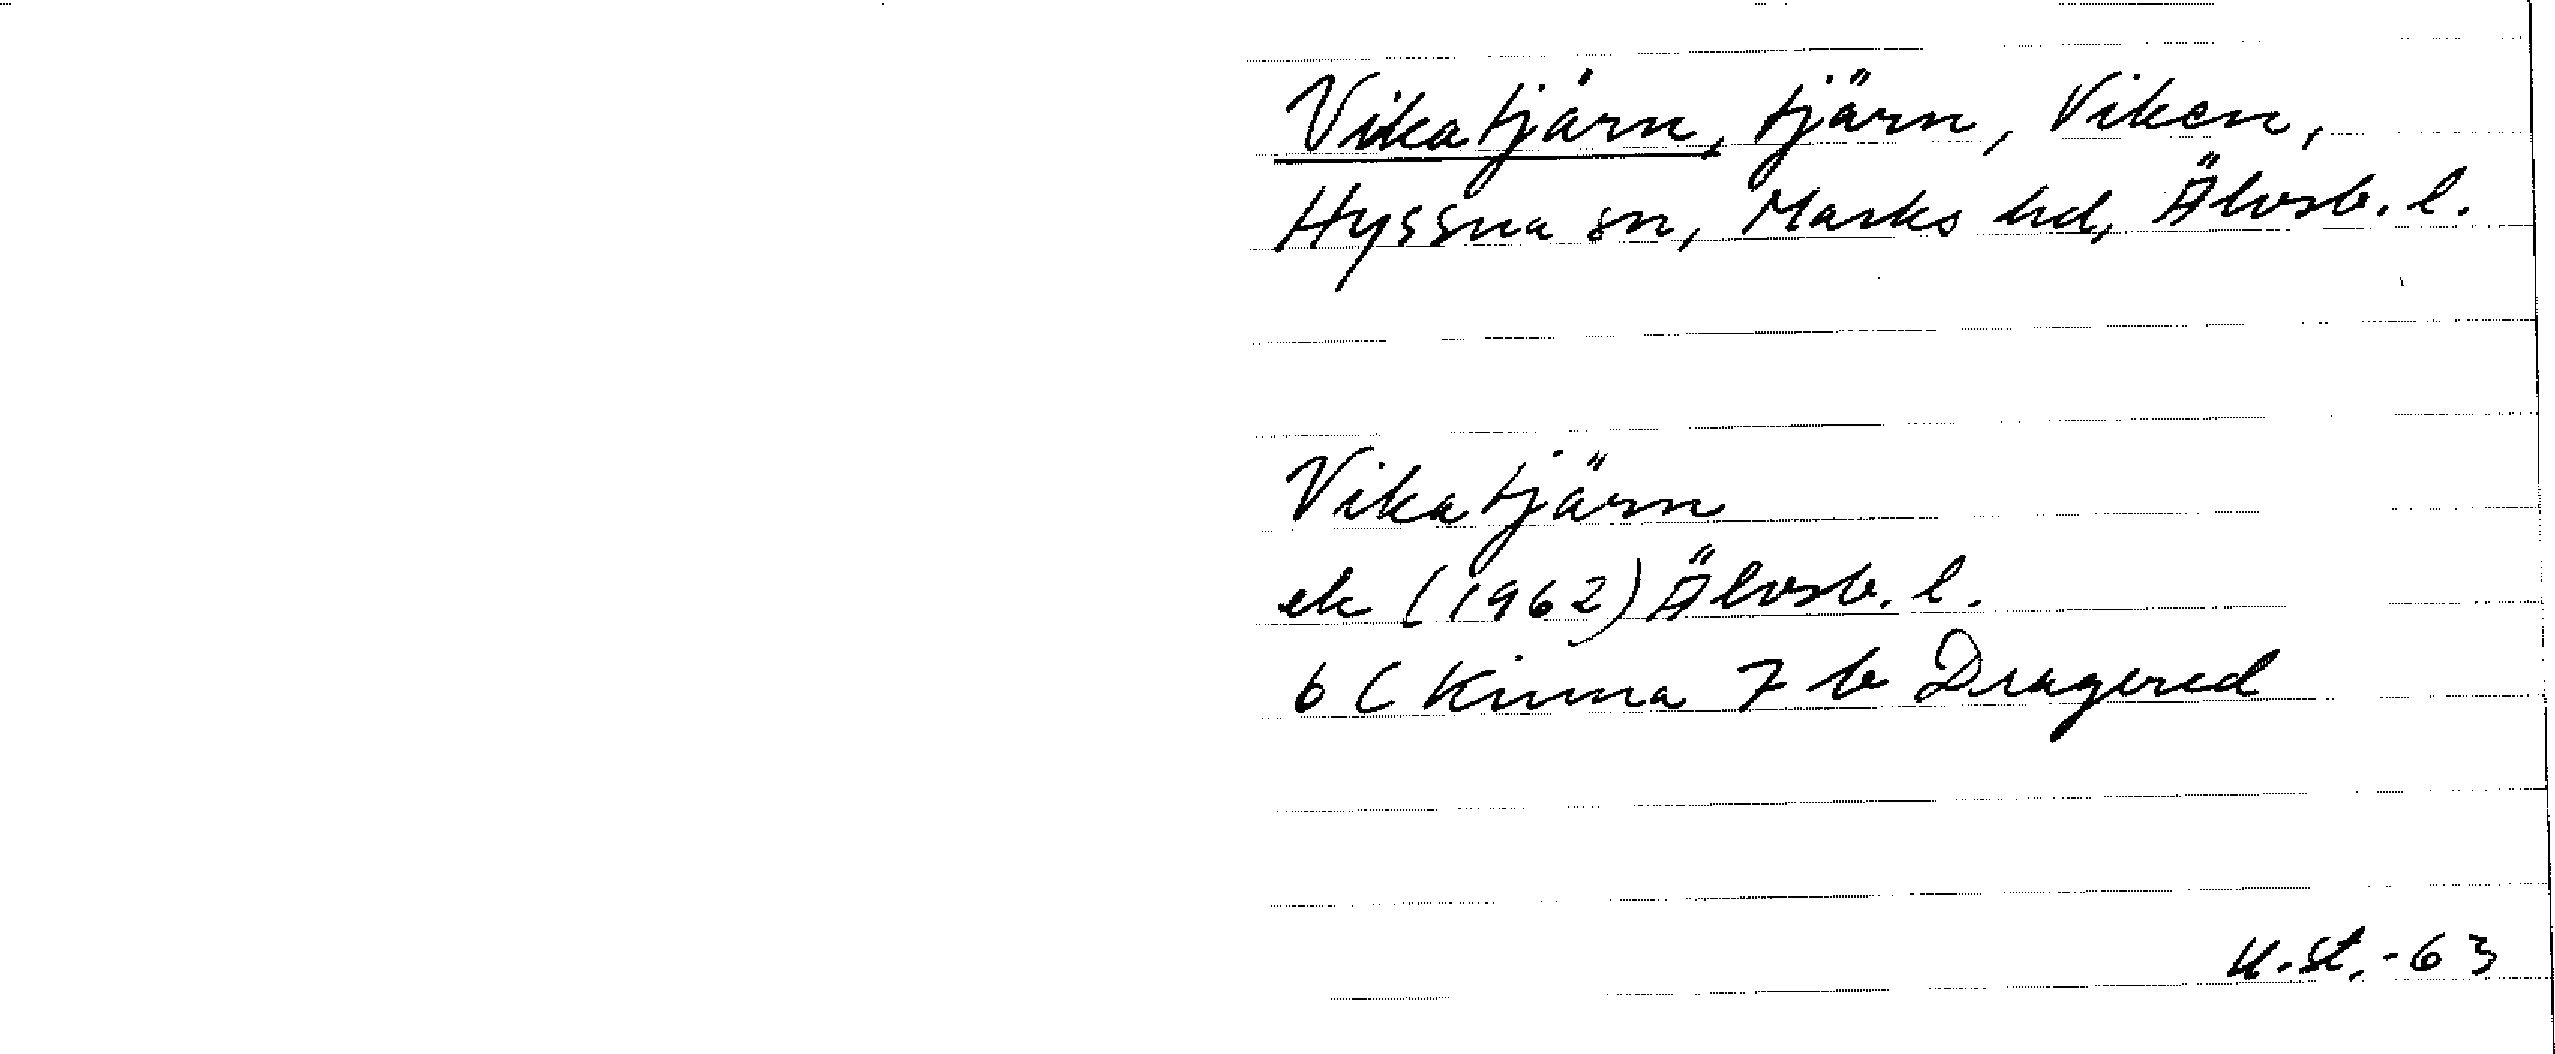 Vikatjärn, tjärn, Viken,
Hyssna sn, Marks hd, Älvsb. l.
Vikatjärn
ek (1962) Älvsb. l.
6 C Kinna 7 b Dragered
U. St. -63